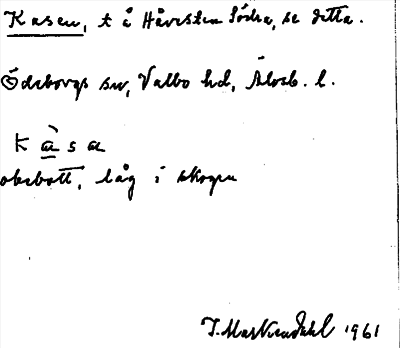 Kasen, t å Håvesten Södra, se detta.
Ödeborgs sn, Valbo hd, Älvsb. l.
k à s a
obebott, låg i skogen
1961